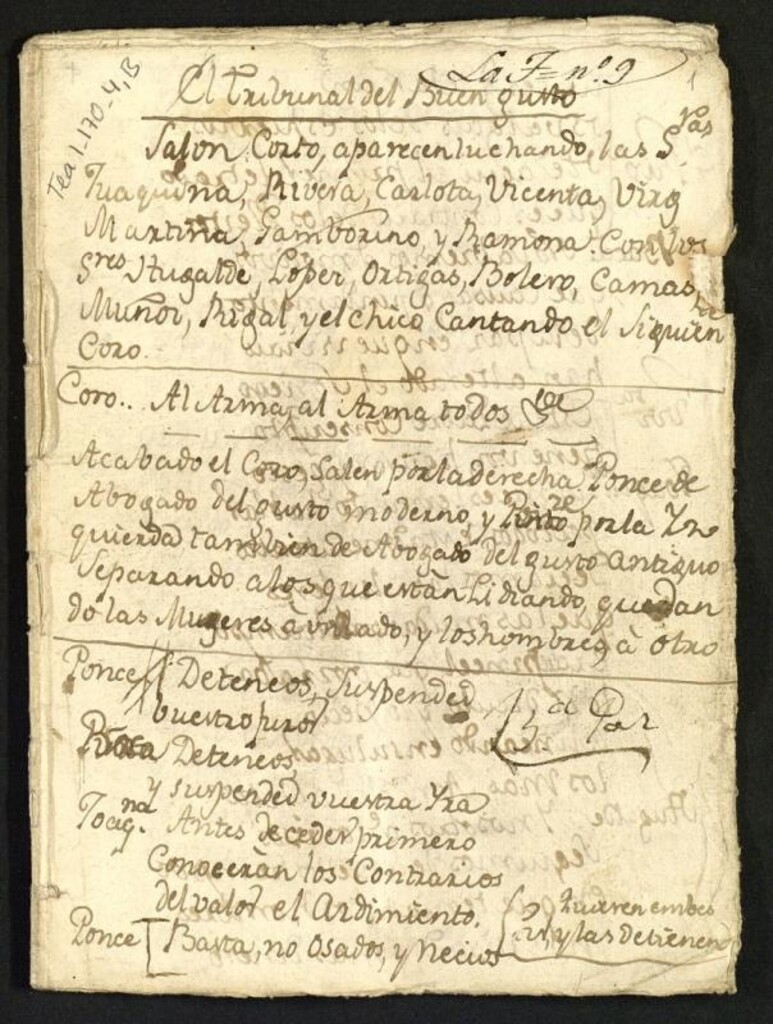 La F= nº. 9
1
Tea 1-170-4, B
El Tribunal del Buen gusto
Salon Corto, aparecen luchando, las S.ras
Juaquina, Rivera, Carlota, Vicenta, Virg
Martina, Tamborino, y Ramona. Con los
Sres Hugalde, Loper, Ortigas, Bolero, Camas,
Muñoz, Rigal, y el chico Cantando el Siguiente
Coro.
Coro.. Al Arma, al Arma todos &ce
Acabado el Coro, Salen por la derecha Ponce de
Abogado del gusto moderno, y por la Yz
quierda tambien de Abogado del gusto antiguo
Separando a los que están Lidiando, quedan
do las Mugeres à un lado, y los hombres à otro
Ponce Deteneos, Suspended
vuestro furor
Deteneos,
y suspended vuestra Yra
Joaq.na Antes de ceder primero
Conoceràn los Contrarios
del valor el Ardimiento.
Ponce Basta, no osados, y Necios
y las detienen